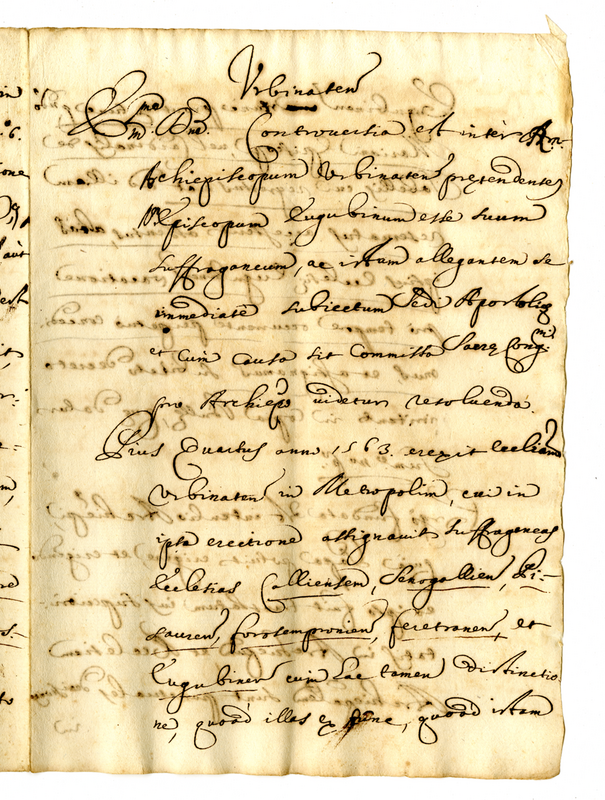 Urbinaten
Emē. Dnē. Controversia est inter Am.
Archiepiscopum Urbinaten prętendentē
Episcopum Eugubinum esse suum
suffraganeum, ac istam allegantem se
immediatè subiectum Sedi Apostolicę
et cum causa sit commissa Sacrę Congni.
pro Archiepo videtur resoluenda.
Pius Quartus anno 1563. erexit Eccliam
Urbinaten in Metropolim, cui in
ipsa erectione assignauit suffraganeas
Ecclesias Calliensem, Senogallien, Pi-
sauren, forosempronien, feretranen, et
Eugubinen cum hac tamen distinctio
ne, quoad illas ex nunc, quoad istam